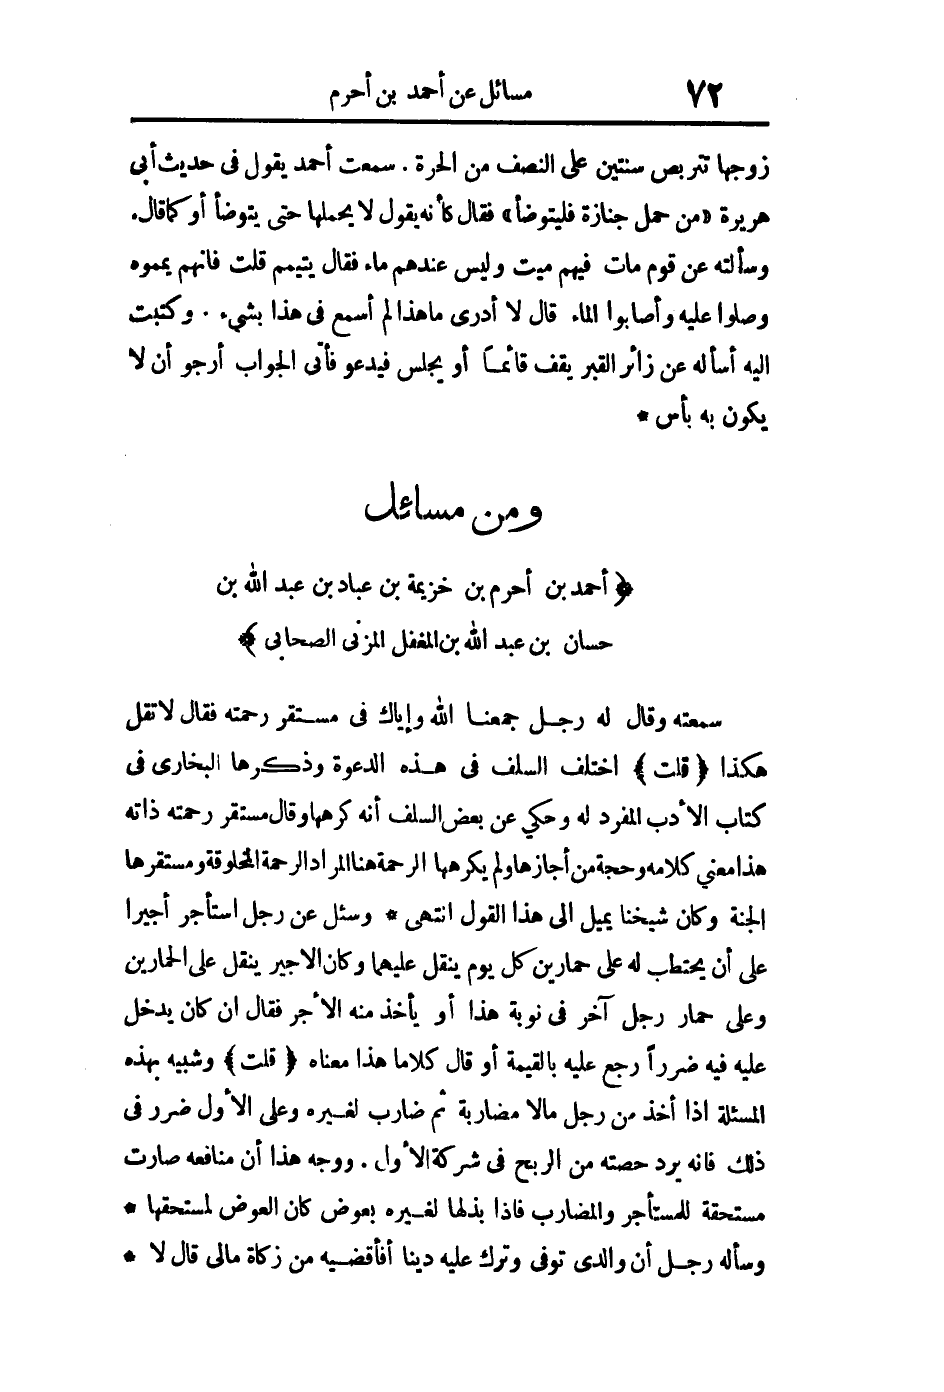 ٧٢ مسائل عن أحمد بن أحرم
زوجها تتربص سنتين على النصف من الحرة . سمعت أحمد يقول فى حديث أبى
هريرة «من حمل جنازة فليتوضأ» فقال كأنه يقول لا يحملها حتى يتوضأ أو كما قال.
وسألته عن قوم مات فيهم ميت وليس عندهم ماء فقال يتيمم قلت فانهم يمموه
وصلوا عليه وأصابوا الماء قال لا أدرى ماهذا لم أسمع فى هذا بشيء . وكتبت
اليه أسأله عن زائر القبر يقف قائما أو يجلس فيدعو فأتى الجواب أرجو أن لا
يكون به بأس *
ومن مسائل
﴿ أحمد بن أحرم بن خزيمة بن عباد بن عبد الله بن
حسان بن عبد الله بن المغفل المزنى الصحابى ﴾
سمعته وقال له رجل جمعنا الله وإياك فى مستقر رحمته فقال لاتقل
هكذا ﴿ قلت ﴾ اختلف السلف فى هذه الدعوة وذكرها البخارى فى
كتاب الأدب المفرد له وحكي عن بعض السلف أنه كرهها وقال مستقر رحمته ذاته
هذا معني كلامه وحجة من أجازها ولم يكرهها الرحمة هنا المراد الرحمة المخلوقة ومستقرها
الجنة وكان شيخنا يميل الى هذا القول انتهى * وسئل عن رجل استأجر أجيرا
على أن يحتطب له على حمارين كل يوم ينقل عليهما وكان الاجير ينقل على الحمارين
وعلى حمار رجل آخر فى نوبة هذا أو يأخذ منه الأجر فقال ان كان يدخل
عليه فيه ضرراً رجع عليه بالقيمة أو قال كلاما هذا معناه ﴿ قلت ﴾ وشبيه بهذه
المسئلة اذا أخذ من رجل مالا مضاربة ثم ضارب لغيره وعلى الأول ضرر فى
ذلك فانه يرد حصته من الربح فى شركة الأول . ووجه هذا أن منافعه صارت
مستحقة للمستأجر والمضارب فاذا بذلها لغيره بعوض كان العوض لمستحقها *
وسأله رجل أن والدى توفى وترك عليه دينا أفأقضيه من زكاة مالى قال لا *